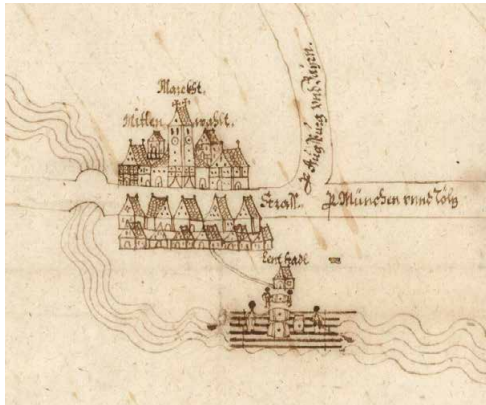 Marckht.
Mitlen waldt.
P Augspurg vnd Bayrn.
Strass.
P München vnnd Tölz
Lent stadl